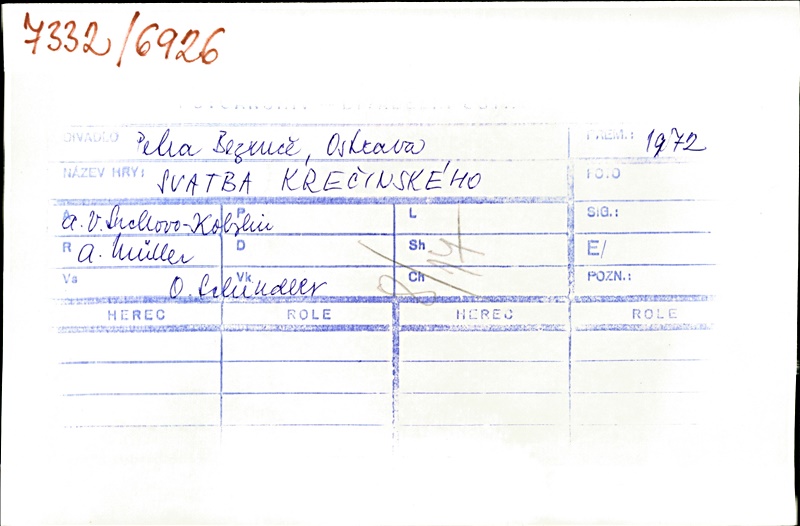 7332/6926
DIVADLO Petra Bezruče, Ostrava PREM.: 1972
NÁZEV HRY: SVATBA KREČINSKÉHO
A A. V. Suchovo-Kobylin P L SIG.:
R A. Müller D Sh E/
Vs O. Schindler Vk Ch POZN.:
HEREC ROLE HEREC ROLE